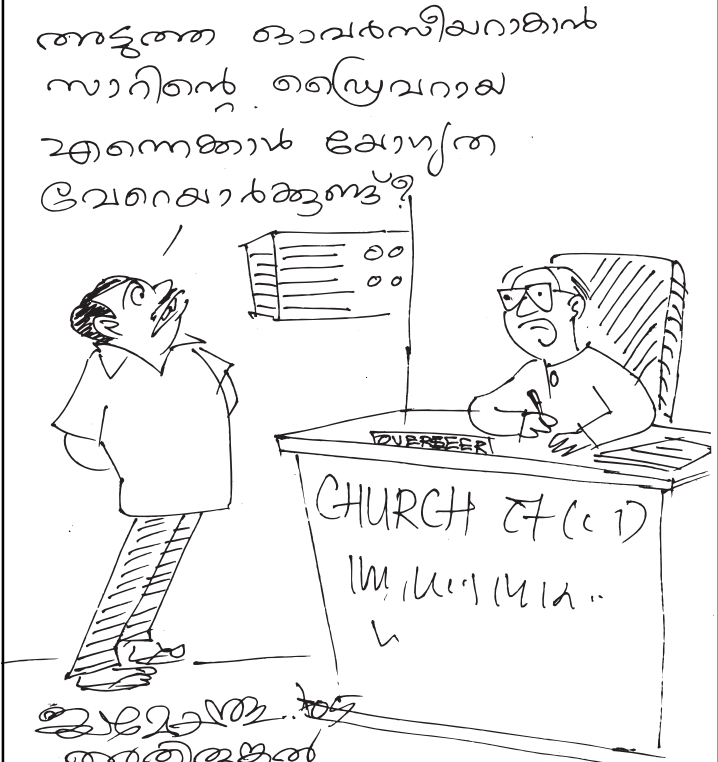 അടുത്ത ഓവർസീയറാകാൻ
സാറിന്റെ ഡ്രൈവറായ
എന്നെക്കാൾ യോഗ്യത
വേറെയാർക്കുണ്ട്?
OVERSEER
CHURCH